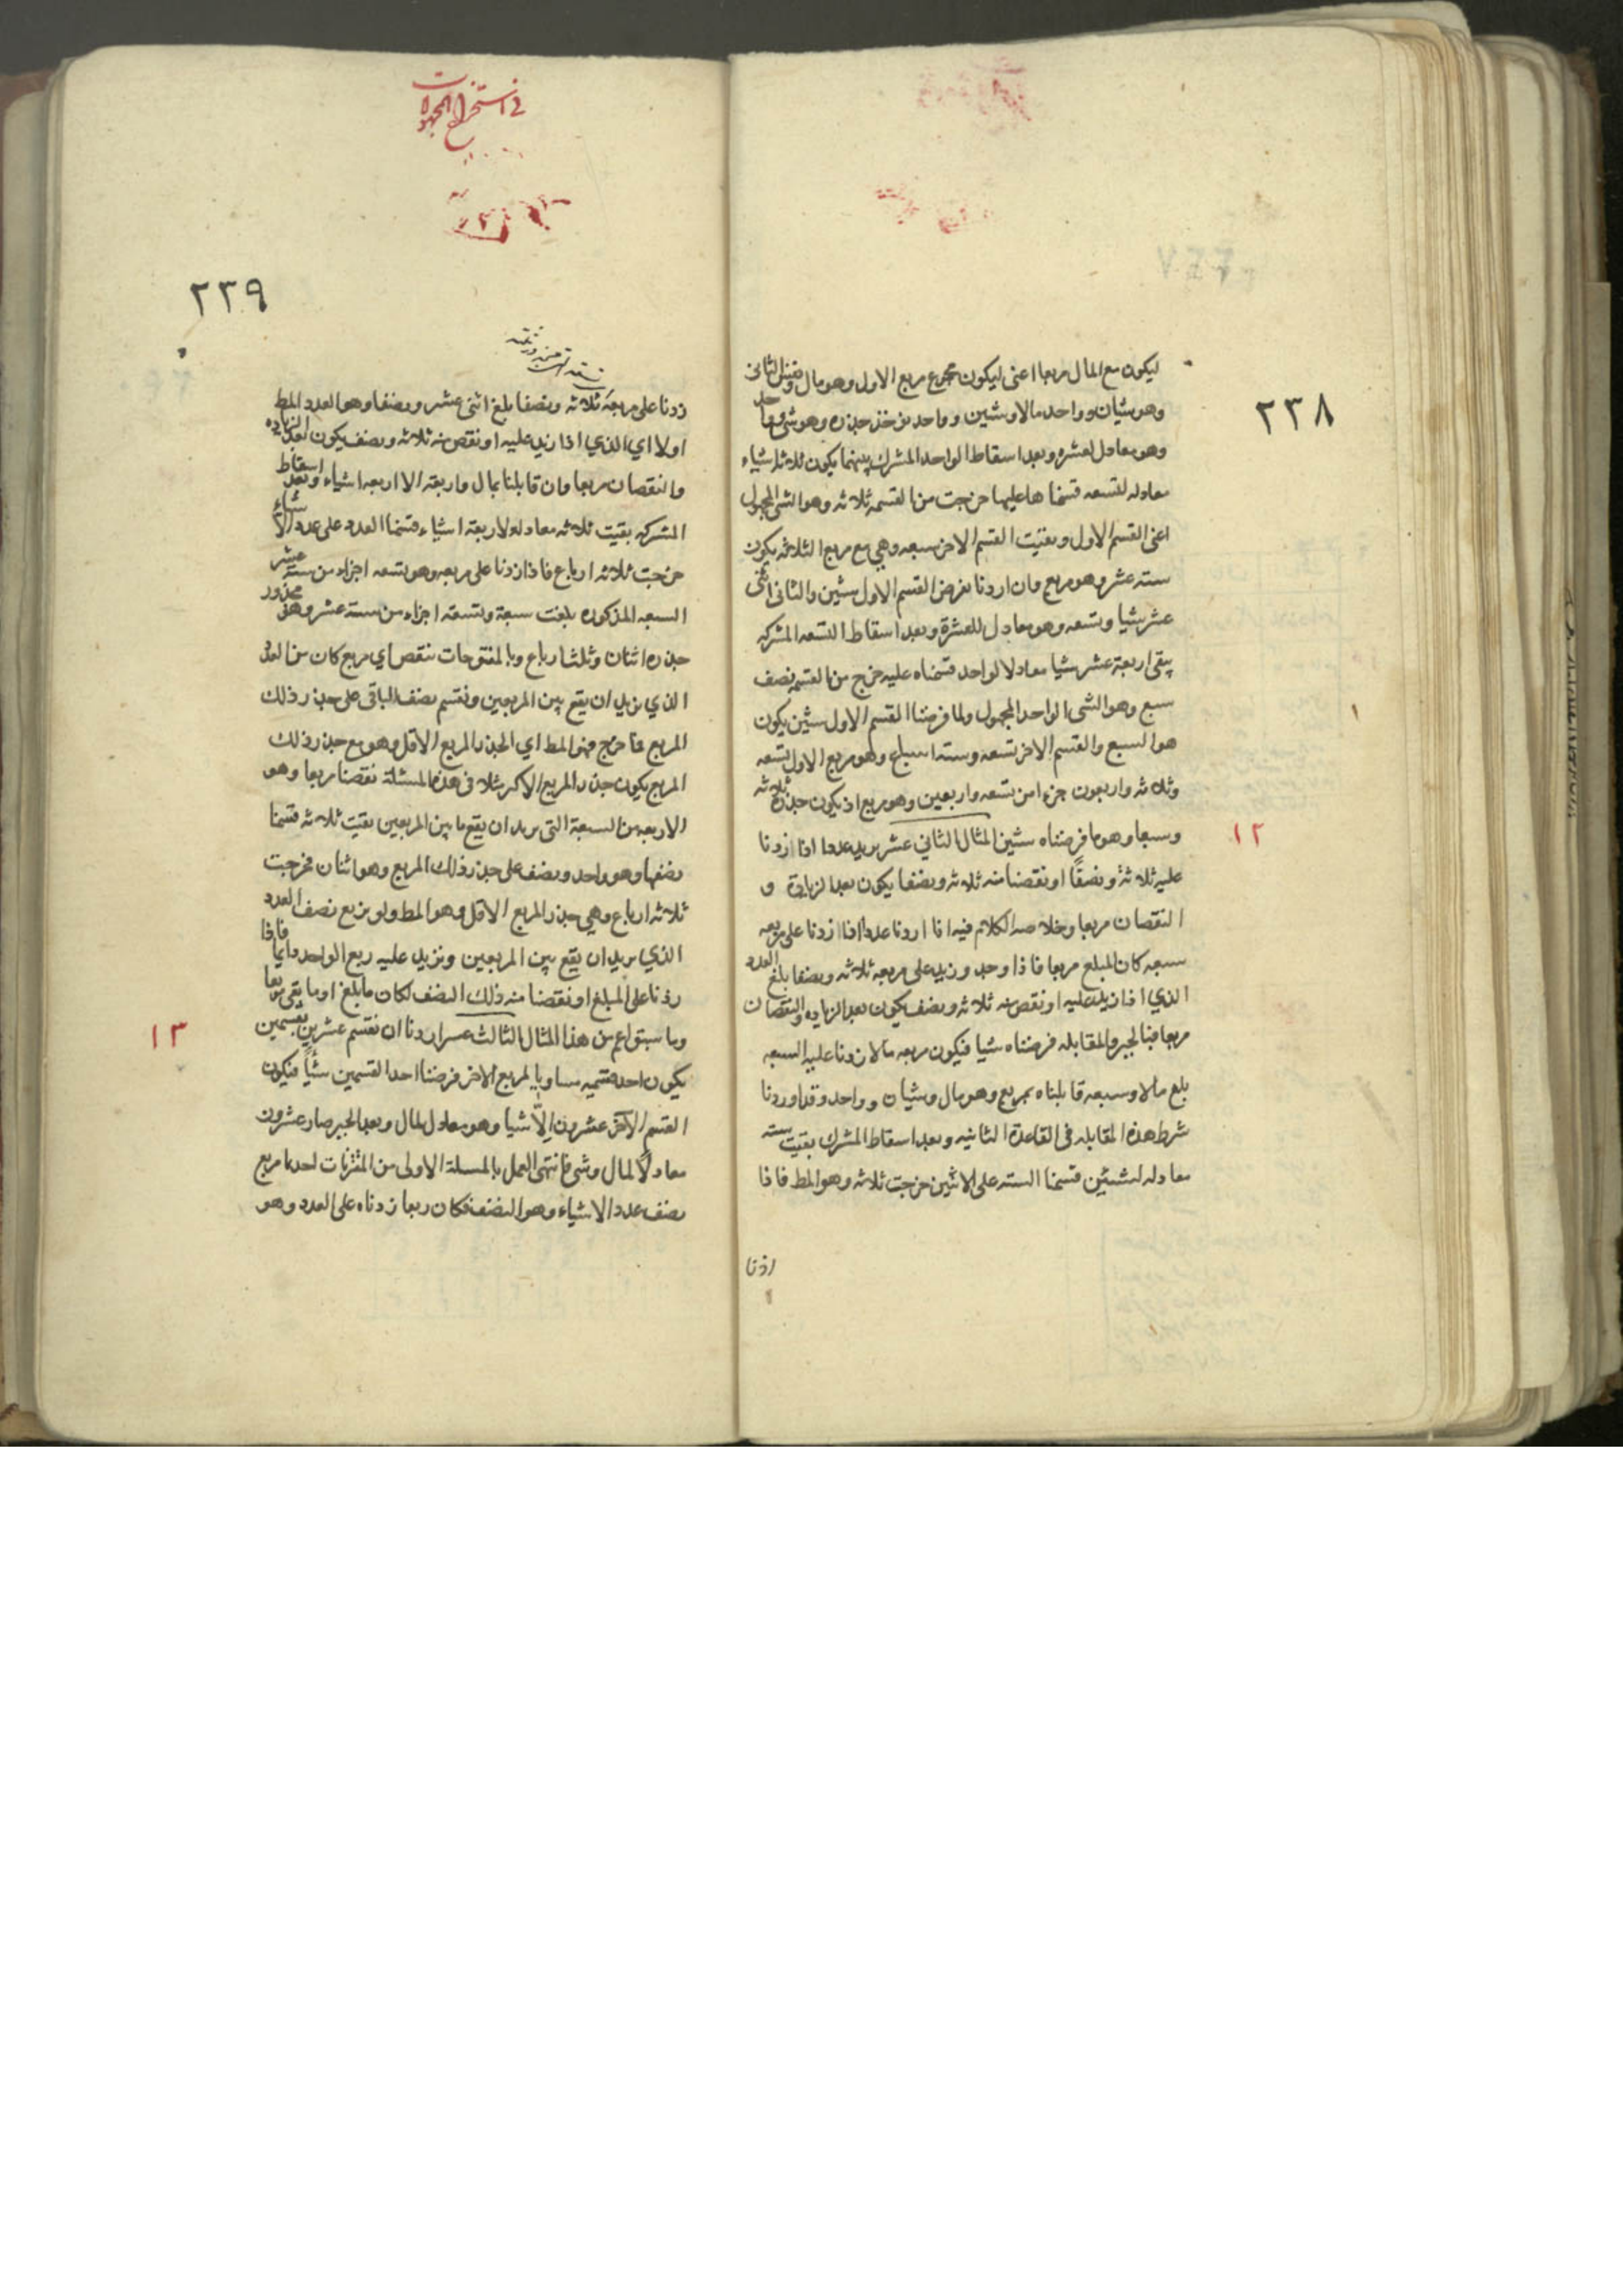 ٢٣٨
ليكون مع المال مربعا اعنى ليكون مجموع مربع الاول وهو مال ونفس الثانى
وهو شيان وواحد مالا وشيئين وواحد فخذ جذره وهو شئ وواحد
وهو معادل لعشره وبعد اسقاط الواحد المشترك بينهما يكون ثلاثة اشياء
معادله لتسعه قسمناها عليها خرجت من القسمه ثلاثه وهو الشى المجهول
اعنى القسم الاول وبقيت القسم الاخر سبعه وهي مع مربع الثلاثه يكون
سته عشر وهو مربع وان اردنا نفرض القسم الاول شيئين والثانى اثنى
عشر شيا وتسعه وهو معادل للعشرة وبعد اسقاط التسعه المشتركه
يبقى اربعة عشر شيا معادلا لواحد قسمناه عليه خرج من القسمه نصف
سبع وهو الشى الواحد المجهول ولما فرضنا القسم الاول شيئين يكون
هو السبع والقسم الاخر تسعه وسته اسباع وهو مع مربع الاول تسعه
وثلاثه واربعون جزءا من تسعه واربعين وهو مربع اذ يكون جذره ثلاثه
وسبعا وهو ما فرضناه شيئين المثال الثاني عشر نريد عددا اذا زدنا
١٢
عليه ثلاثة ونصفًا او نقصنا منه ثلاثه ونصفا يكون بعد الزيادة و
النقصان مربعا وخلاصه الكلام فيه انا اردنا عددا اذا زدنا على مربعه
سبعه كان المبلغ مربعا فاذا وجد وزيد على مربعه ثلاثه ونصفا بلغ العدد
الذي اذا زيد عليه او نقص منه ثلاثه ونصف يكون بعد الزياده والنقصان
مربعا فبالجبر والمقابله فرضناه شيا فيكون مربعه مالا زدنا عليه السبعه
بلغ مالا وسبعه قابلناه بمربع وهو مال وشيان وواحد وقد اوردنا
شرط هذه المقابله فى القاعدة الثانيه وبعد اسقاط المشترك بقيت سته
معادله لشيئين قسمنا السته على الاثنين خرجت ثلاثه وهو المط فاذا
زدنا
فى استخراج المجهولات
٢٣٩
زدنا على مربعه ثلاثه ونصفا بلغ اثنى عشر ونصفا وهو العدد المط
اولا اي الذي اذا زيد عليه او نقص منه ثلاثه ونصف يكون بعد الزياده
والنقصان مربعا وان قابلنا بمال واربعة الا اربعه اشياء وبعد اسقاط
المشتركه بقيت ثلاثه معادله لاربعة اشياء قسمنا العدد على عدد الاشياء
خرجت ثلاثه ارباع فاذا زدنا على مربعه وهو تسعه اجزاء من سته عشر
السبعه المذكوره بلغت سبعة وتسعة اجزاء من سته عشر وهو مجذور
جذره اثنان وثلثا رباع وبالمفتوحات ننقص اي مربع كان من العدد
الذي نريد ان يقع بين المربعين ونقسم نصف الباقى على جذر ذلك
المربع فما خرج فهو المط اي الجذر المربع الاقل وهو مع جذر ذلك
المربع يكون جذر المربع الاكبر مثلا فى هذه المسئلة نقصنا مربعا وهو
الاربعه من السبعة التى نريد ان يقع ما بين المربعين بقيت ثلاثه قسمنا
نصفها وهو واحد ونصف على جذر ذلك المربع وهو اثنان فخرجت
ثلاثه ارباع وهي جذر المربع الاقل وهو المط ولو نربع نصف العدد
الذي نريد ان يقع بين المربعين ونزيد عليه ربع الواحد دايما فاذا
زدنا على المبلغ او نقصنا منه ذلك النصف لكان ما بلغ او ما بقى مربعا
وما سبق اعم من هذا المثال الثالث عشر اردنا ان نقسم عشرين بقسمين
١٣
يكون احد قسميه مساويا لمربع الاخر فرضنا احد القسمين شيأً فيكون
القسم الآخر عشرون إلّا شيا وهو معادل لمال وبعد الجبر صار عشرون
معادلا لمال وشى فانتهى العمل بالمسئلة الاولى من المقترنات اخذنا مربع
نصف عدد الاشياء وهو النصف فكان ربعا زدناه على العدد وهو